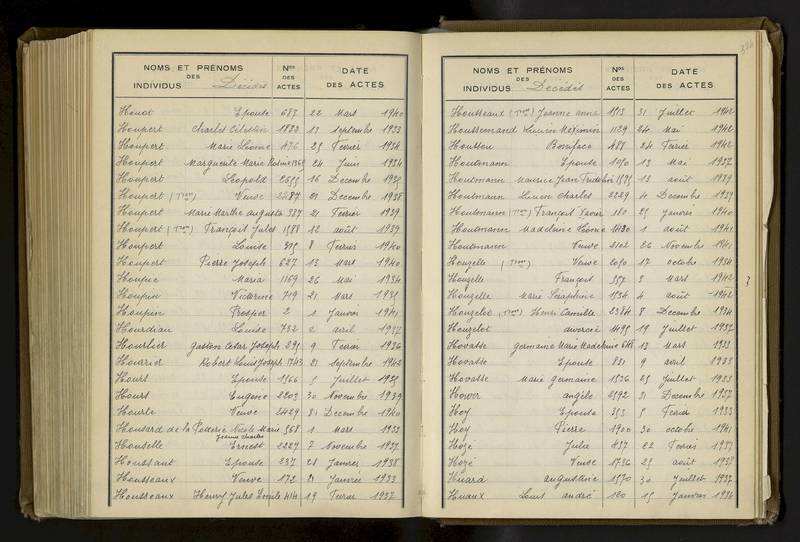 NOMS ET PRÉNOMS DES INDIVIDUS Décédés Nos DES ACTES DATE DES ACTES
Houot Epouse 683 22 Mars 1940
Houpert Charles Célestin 1822 13 septembre 1933
Houpert Marie Léonie 476 25 Fevrier 1934
Houpert Marguerite Marie 24 Juin 1934
Houpert Léopold 16 Decembre 1935
Houpert (Veuve) Veuve 2287 Decembre 1938
Houpert Marie Marthe augusta 327 21 Fevrier 1939
Houpert François Jules 1588 12 août 1939
Houpert Louise 8 Fevrier 1940
Houpert Pierre Joseph 627 13 Mars 1940
Houpic Maria 1169 26 Mai 1934
Houpin Victorine 719 21 Mars 1935
Houpin Prosper 2 1 Janvier 1941
Hourdiau Louise 732 2 avril 1937
Hourlier gaston César Joseph 9 Fevrier 1936
Hourrier Robert Louis Joseph 1743 21 septembre 1942
Hours Epouse 1366 5 Juillet 1935
Hours Eugène 2203 30 Novembre 1939
Hourte Veuve 2429 31 Decembre 1940
Housard de la Potterie Nicole Marie 568 1 Mars 1933
Jeanne Charles
Houselle Ernest 2227 7 Novembre 1937
Houssant Epouse 237 28 Janvier 1938
Housseaux Veuve 172 21 Janvier 1933
Housseaux Henry Jules Emile 414 19 Fevrier 1937
NOMS ET PRÉNOMS DES INDIVIDUS Décédés Nos DES ACTES DATE DES ACTES
Housseaux Jeanne anna 1513 31 Juillet 1942
Houssemand Lucien Maximin 1129 24 Mai 1942
Housson Boniface 488 24 Fevrier 1942
Houtmann Epouse 1050 13 Mai 1937
Houtmann Maurice Jean 1595 13 août 1939
Houtmann Lucien Charles 2229 4 Decembre 1939
Houtmann François Xavier 180 25 Janvier 1940
Houtmann Madeleine Léonie 1430 1 août 1941
Houtmann Veuve 2102 26 Novembre 1941
Houzelle Veuve 2050 17 octobre 1934
Houzelle François 557 3 Mars 1942
Houzelle Marie Séraphine 1534 4 août 1942
Houzelot Henri Camille 2384 8 Decembre 1934
Houzelot divorcée 1495 19 Juillet 1937
Hovasse germaine Marie Madeleine 668 13 Mars 1933
Hovasse Epouse 821 9 avril 1933
Hovasse Marie germaine 1526 25 Juillet 1933
Hower angèle 2592 31 Decembre 1937
Hoy Epouse 353 5 Fevrier 1933
Hoy Pierre 1900 30 octobre 1941
Hoze Julie 437 22 Fevrier 1937
Hozé Veuve 1736 25 août 1937
Huard augustine 1570 30 Juillet 1937
Huaux Louis andré 100 15 Janvier 1934